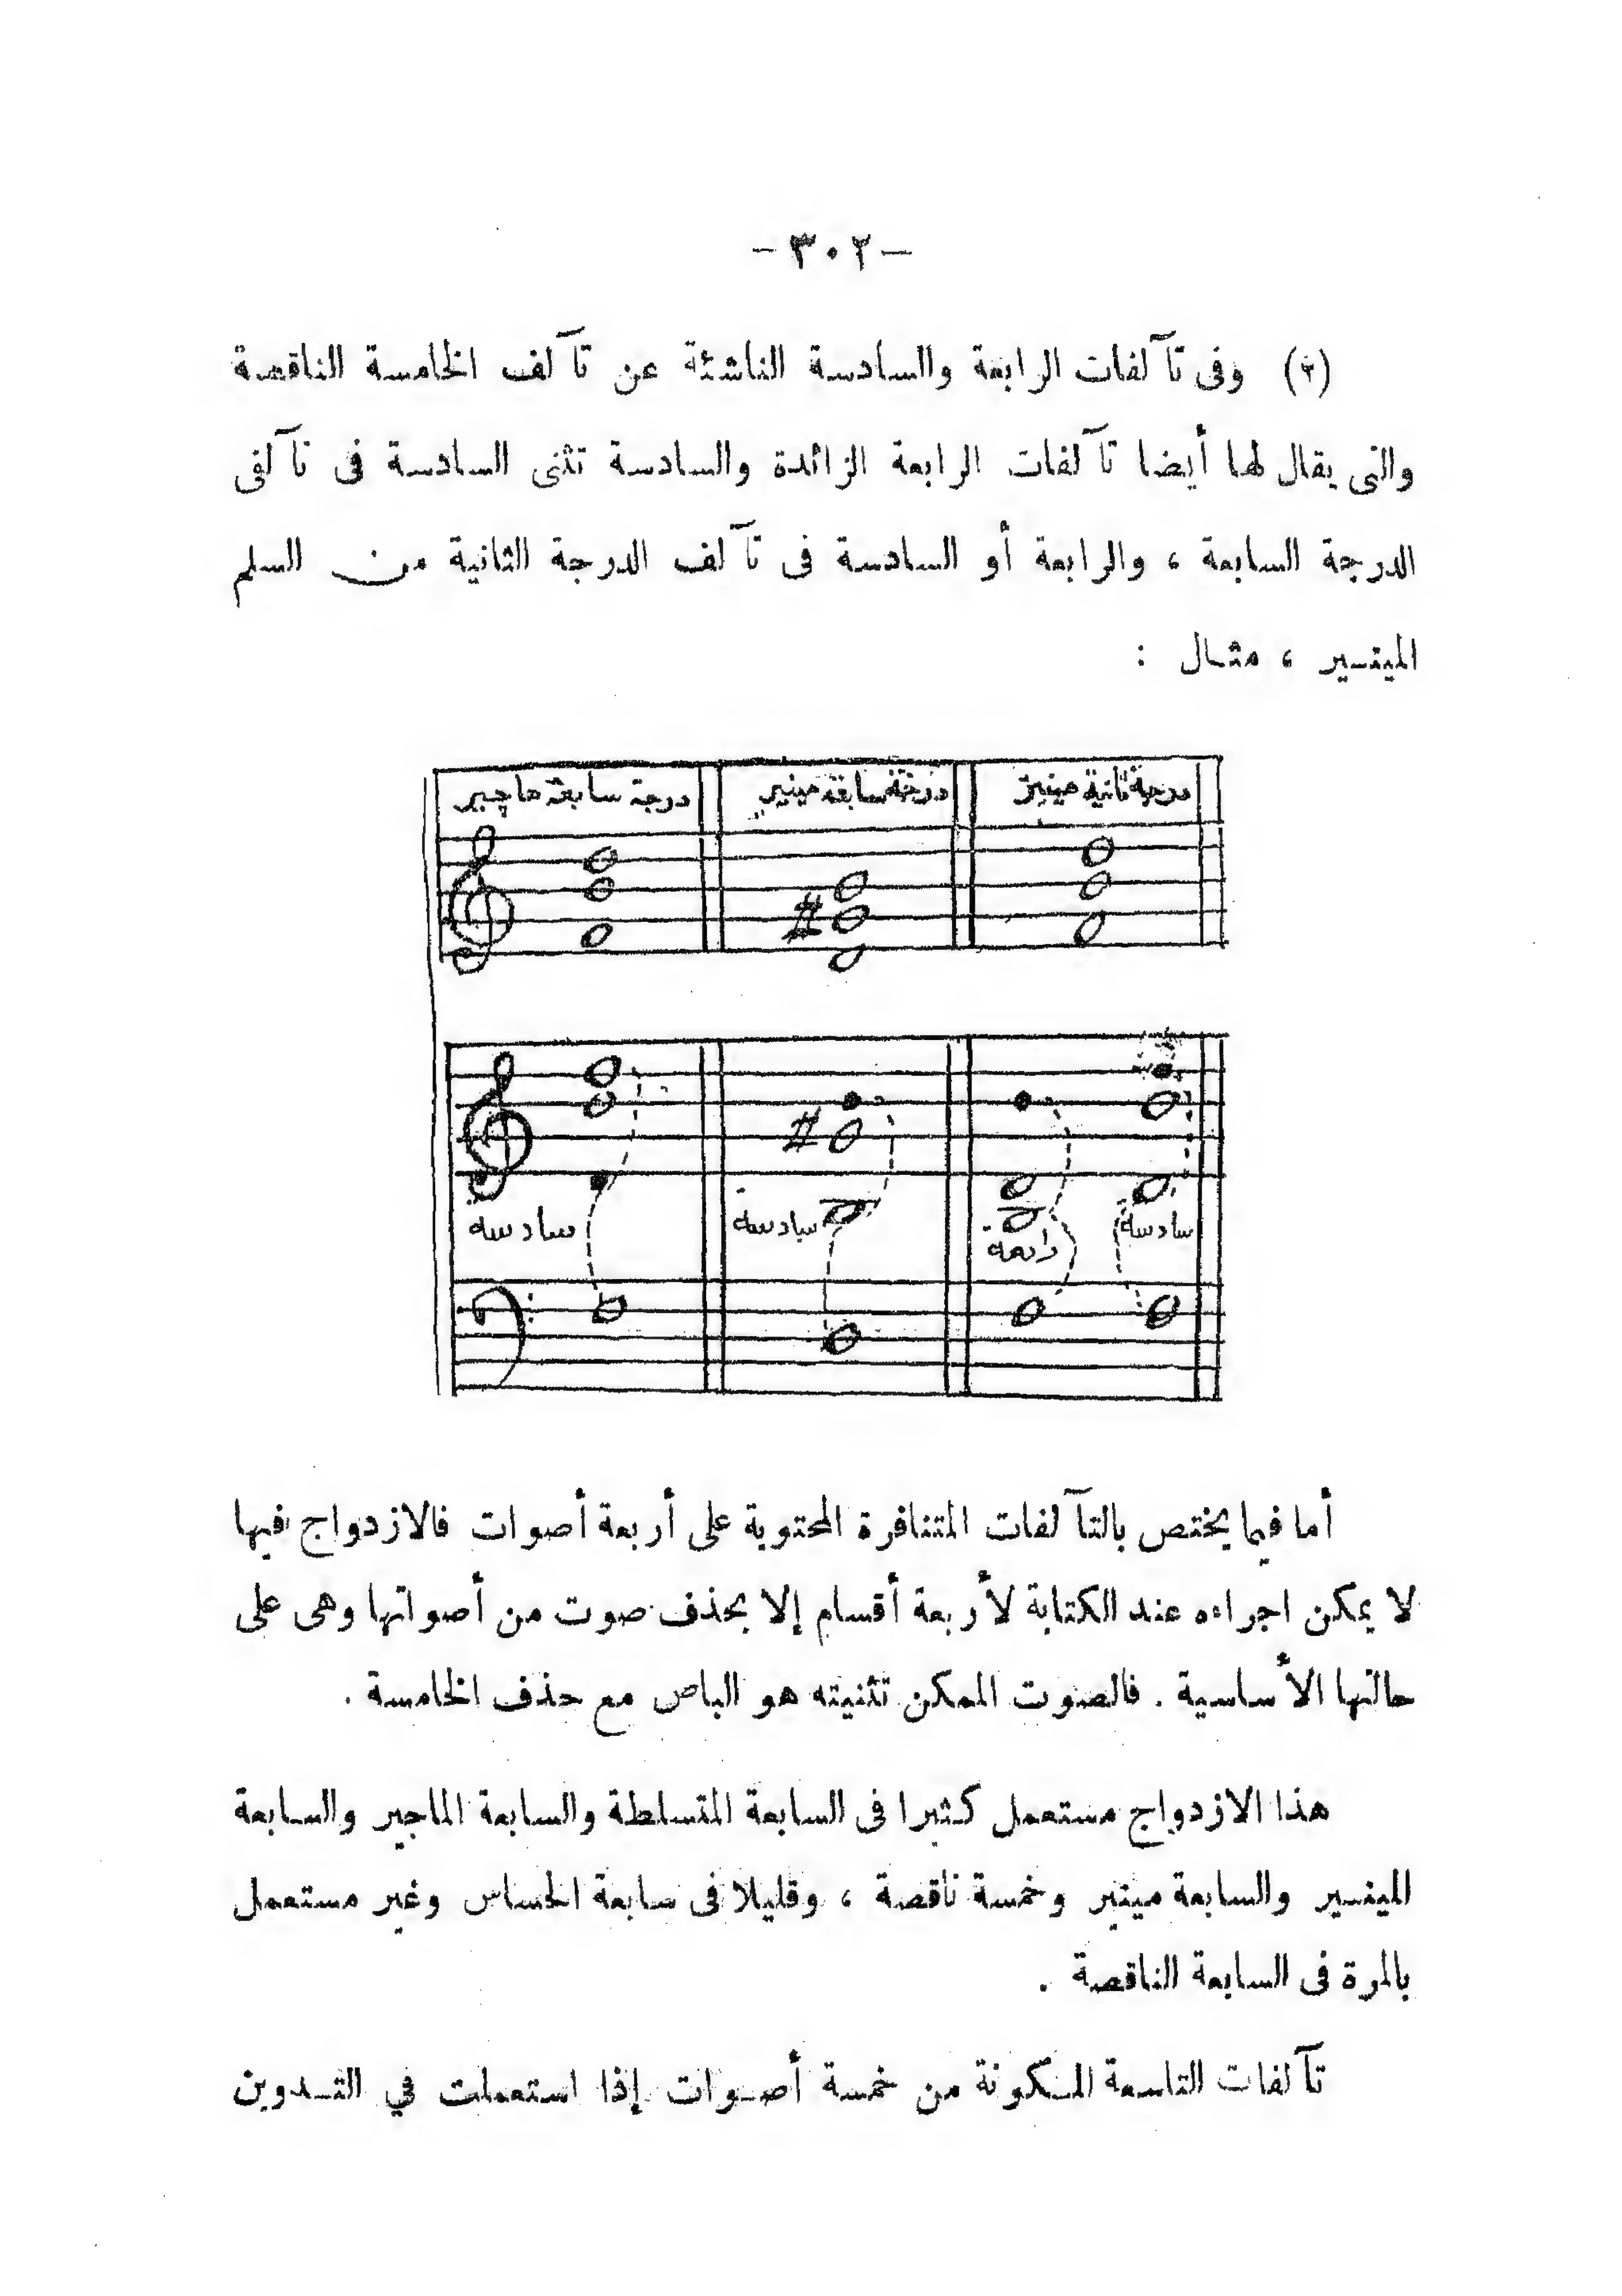 — ٣٠٢ —
(٢) وفى تآلفات الرابعة والسادسة الناشئة عن تآلف الخامسة الناقصة
والتى يقال لها أيضا تآلفات الرابعة الزائدة والسادسة تثنى السادسة فى تآلفى
الدرجة السابعة ، والرابعة أو السادسة فى تآلف الدرجة الثانية من السلم
المينسير ، مثال :
درجة سابعة ماچير درجة سابعة مينير درجة ثانية مينير
سادسة سادسة رابعة سادسة
أما فيما يختص بالتآلفات المتنافرة المحتوية على أربعة أصوات فالازدواج فيها
لا يمكن اجراءه عند الكتابة لأربعة أقسام إلا بحذف صوت من أصواتها وهى على
حالتها الأساسية . فالصوت الممكن تثنيته هو الباص مع حذف الخامسة .
هذا الازدواج مستعمل كثيرا فى السابعة المتسلطة والسابعة الماجير والسابعة
المينسير والسابعة مينير وخمسة ناقصة ، وقليلا فى سابعة الحساس وغير مستعمل
بالمرة فى السابعة الناقصة .
تآلفات التاسعة المكونة من خمسة أصوات إذا استعملت في التدوين